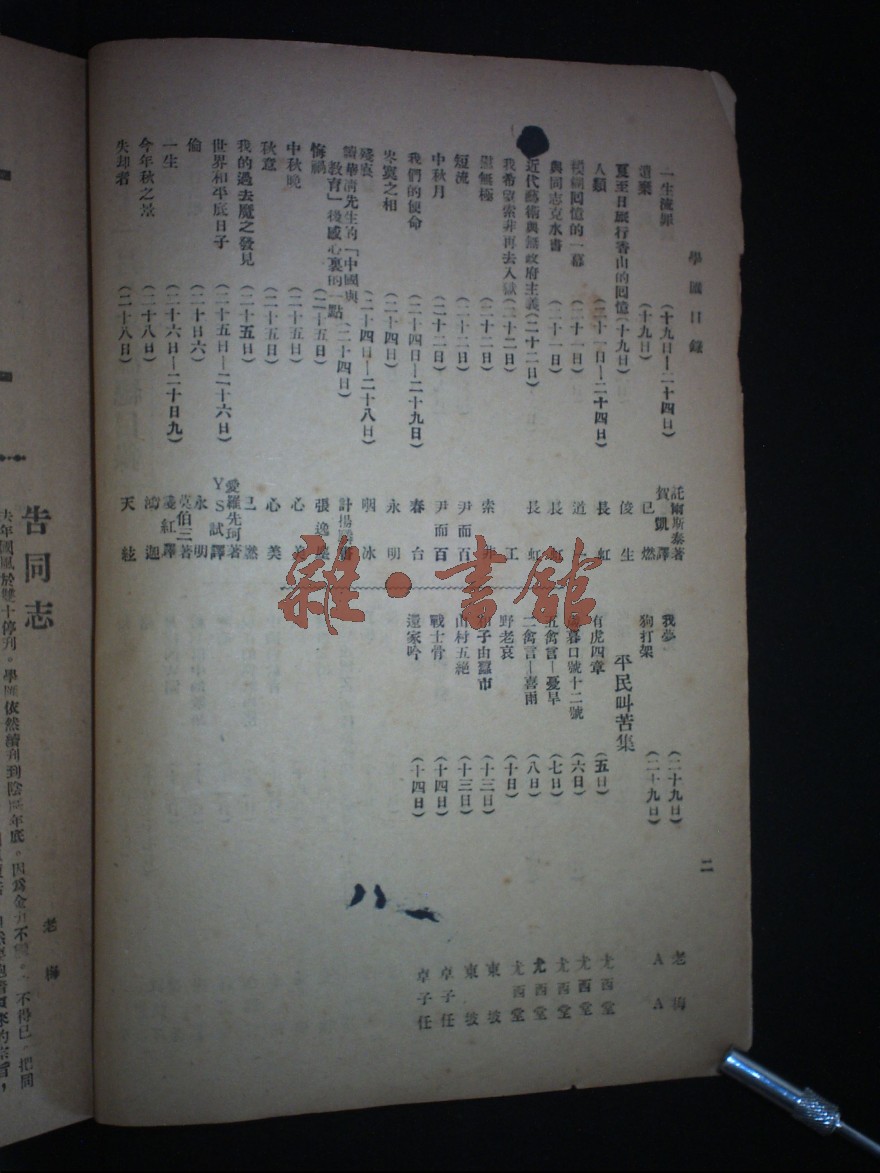 學匯目錄
二
一生流罪 (十九日—二十四日) 託爾斯泰著 賀凱譯
遺棄 (十九日) 已燃
夏至日旅行香山的回憶 (十九日) 俊生
人類 (二十一日—二十四日) 長虹
模糊回憶的一幕 (二十一日) 道
與同志克水書 (二十一日) 長虹
近代藝術與無政府主義 (二十二日) 長虹
我希望索非再去入獄 (二十二日) 江
無極 (二十二日) 索非
短流 (二十二日) 尹而百
中秋月 (二十二日) 尹而百
我們的使命 (二十四日—二十九日) 春台
岑寞之相 (二十四日) 永明
殘衰 (二十四日—二十八日) 咽冰
讀華清先生的「中國與教育」後感心裏的一點 (二十四日) 計揚
悔禍 (二十五日) 張逸
中秋晚 (二十五日) 心美
秋意 (二十五日) 心美
我的過去魔之發見 (二十五日) 已燃
世界和平底日子 (二十五日—二十六日) 愛羅先珂著 YS試譯
倫 (二十日六) 永明
一生 (二十六日—二十日九) 莫伯三著 凌紅譯
今年秋之景 (二十八日) 鴻迦
失却者 (二十八日) 天絃
我夢 (二十九日) 老梅
狗打架 (二十九日) AA
平民叫苦集
有虎四章 (五日) 尤西堂
歲暮口號十二號 (六日) 尤西堂
五禽言—憂旱 (七日) 尤西堂
二禽言—喜雨 (八日) 尤西堂
野老哀 (十日) 尤西堂
子由蠶市 (十三日) 東坡
山村五絕 (十三日) 東坡
戰士骨 (十四日) 卓子任
還家吟 (十四日) 卓子任
雜·書館
告同志
老梅
去年國風於雙十停刊。學匯依然續刊到陰曆年底。因為金力不。不得已。把同